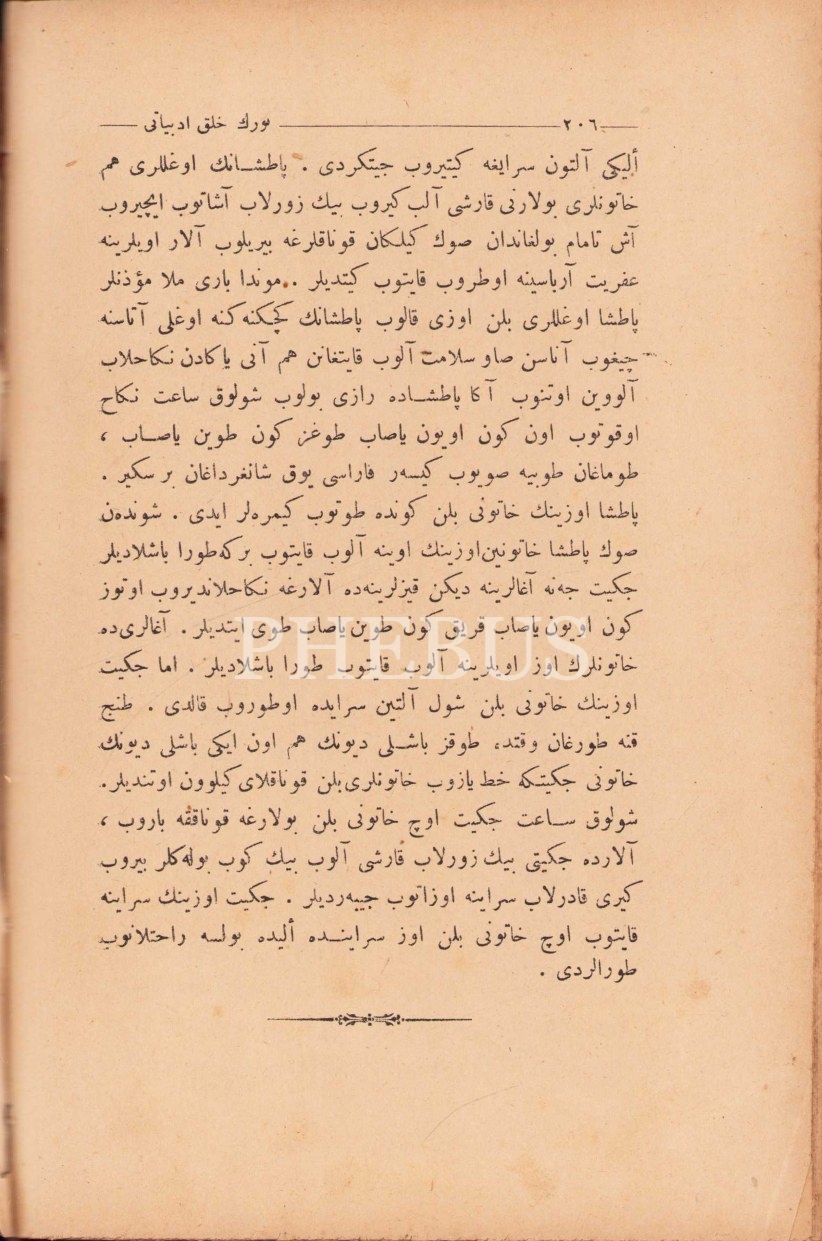 ٢٠٦ تورك خلق ادبياتى
أليكى آلتون سرايغه كيتيروب جيتكردى . پاطشانك اوغللرى هم
خاتونلرى بولارنى قارشى آلب كيروب بيك زورلاب آشاتوب ايچيروب
آش تامام بولغاندان صوك كيلكان قوناقلرغه بيريلوب آلار اويلرينه
عفريت آرباسينه اوطروب قايتوب كيتديلر . موندا بارى ملا مؤذنلر
پاطشا اوغللرى بلن اوزى قالوب پاطشانك كچكنه كنه اوغلى آتاسنه
چيغوب آناسن صاو سلامت آلوب قايتغانن هم آنى ياكادن نكاحلاب
آلووين اوتنوب آكا پاطشاده رازى بولوب شولوق ساعت نكاح
اوقوتوب اون كون اويون ياصاب طوغز كون طوين ياصاب ،
طوماغان طوبيه صويوب كيسەر فاراسى يوق شانغرداغان بر سكير .
پاطشا اوزينك خاتونى بلن كونده طوتوب كيمرەلر ايدى . شوندەن
صوك پاطشا خاتونين اوزينك اوينه آلوب قايتوب بركه طورا باشلاديلر
جكيت جەنه آغالرينه ديكن قيزلرينەده آلارغه نكاحلانديروب اوتوز
كون اويون ياصاب قريق كون طوين ياصاب طوى ايتديلر . آغالرىده
خاتونلرك اوز اويلرينه آلوب قايتوب طورا باشلاديلر . اما جكيت
اوزينك خاتونى بلن شول آلتين سرايده اوطوروب قالدى . طنج
قنه طورغان وقتده طوقز باشلى ديونك هم اون ايكى باشلى ديونك
خاتونى جكيتكه خط يازوب خاتونلرى بلن قوناقلاى كيلوون اوتنديلر .
شولوق ساعت جكيت اوچ خاتونى بلن بولارغه قوناققه باروب ،
آلارده جكيتى بيك زورلاب قارشى آلوب بيك كوب بولەكلر بيروب
كيرى قادرلاب سراينه اوزاتوب جيبەرديلر . جكيت اوزينك سراينه
قايتوب اوچ خاتونى بلن اوز سراينده أليده بولسه راحتلانوب
طورالردى .
PHEBUS